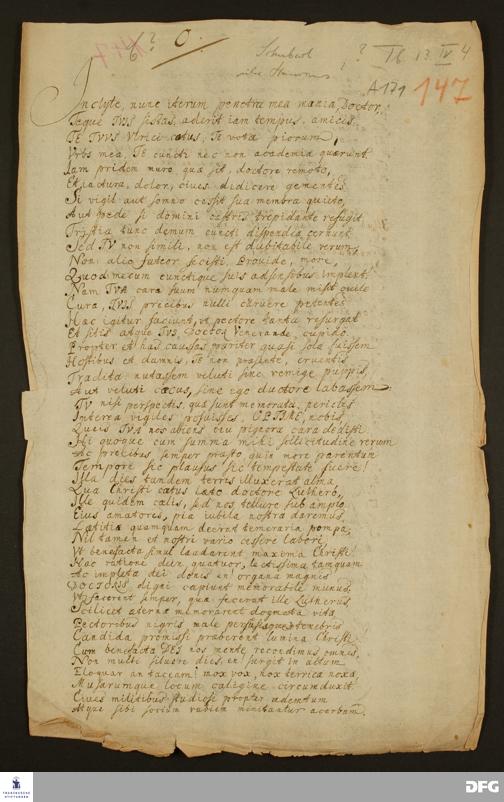 6? O.
Schubert
? II 13 IV 4
A 171
147
Inclyte, nunc iterum penetra mea mœnia, Doctor,
Teque TVIS sistas, aderit iam tempus, amicis.
TE TVVS Vlrici cœtus, Te vota piorum,
Vrbs mea, TE cuncti nec non academia quærunt.
Iam pridem muro quæ sit, doctore remoto,
Et iactura, dolor, cives didicere gementes.
Si vigil aut somno cessit sua membra quieto,
Aut pede si domini castris trepidante refugit
Tristia tunc demum cuncti dispendia cernunt.
Sed TV non simili, non est dubitabile verum,
Non alio fateor fecisti, Provide, more,
Quod mecum cunctique suis adsensibus implent.
Nam TVA cara suum numquam male misit ovile
Cura, TVIS precibus nulli caruere petentes
Hac igitur faciunt, ut pectore tanta resurgat
Et sitis atque TVI, Doctor Venerande, cupido.
Propter et has caussas pariter quasi sola fuissem
Hostibus et damnis, TE non præsente, cruentis
Tradita: nutassem veluti sine remige puppis,
Aut veluti cœcus, sine ego ductore labassem.
TV nisi perspectis, quæ sunt memorata, periclis
Interea vigiles posuisses, OPTIME, nobis,
Queis TVA nos abiens ceu pignora cara dedisti.
Hi quoque cum summa mihi sollicitudine rerum
Ac precibus, semper præsto quin more parentum
Tempore sic plausus sic tempestate fuere!
Illa dies tandem terris illuxerat alma
Qua Christi cœtus læto doctore Luthero,
Ille quidem cœlis, sed nos tellure sub ampla
Eius amatores, pia iubila nostra daremus,
Lætitiæ quamquam deerat temeraria pompa,
Nil tamen et nostri vario cessere labori,
Vt benefacta simul laudarent maxima Christi.
Hac ratione dein quatuor, lectissima tamquam
Ac impleta dei donis en organa magnis
DOCTORIS digni capiunt memorabile munus,
Vt facerent semper, quæ fecerat ille Lutherus,
Scilicet æternæ memorarent dogmata vitæ,
Pectoribus nigris male persuasaque tenebris
Candida promissi præberent lumina Christi.
Cum benefacta DEI nos mente recondimus omnes,
Non multi siluere dies, en surgit in altum
Eloquar an taceam! mox vox, nox terrica noxa,
Musarumque locum caligine circumduxit.
Cives militibus studiosi propter ademtum
Atque sibi socium rabiem minitantur acerbam.
FRANCKESCHE STIFTUNGEN
DFG